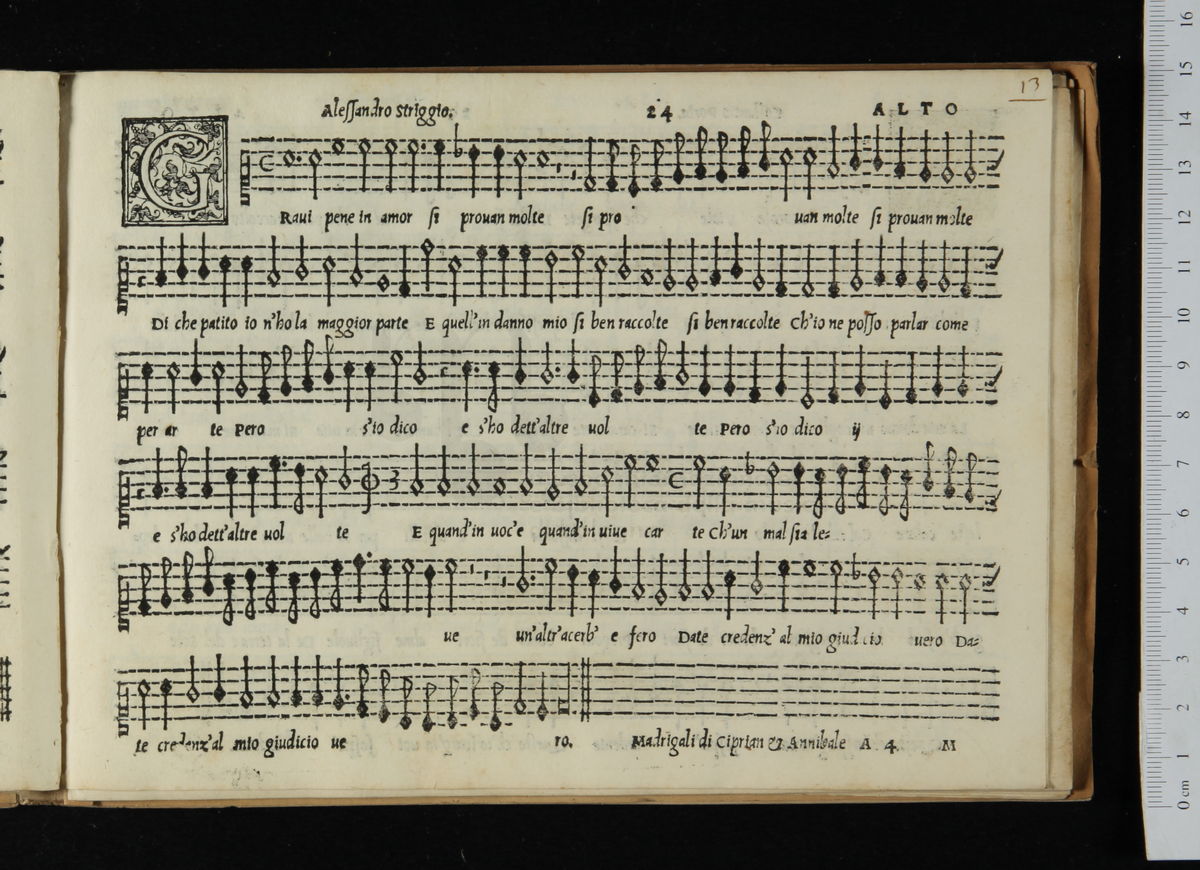 Alessandro Striggio. 24 ALTO
13
GRaui pene in amor si prouan molte si pro uan molte si prouan molte
Di che patito io n'ho la maggior parte E quell'in danno mio si ben raccolte si ben raccolte Ch'io ne posso parlar come
per ar te Pero s'io dico e s'ho dett'altre uol te Pero s'io dico ij
e s'ho dett'altre uol te E quand'in uoc'e quand'in uiue car te Ch'un mal sia le=
ue un'altr'acerb' e fero Date credenz' al mio giudicio uero Da=
te credenz'al mio giudicio ue ro. Madrigali di Ciprian & Annibale A 4. M
16
15
14
13
12
11
10
9
8
7
6
5
4
3
2
1
0 cm